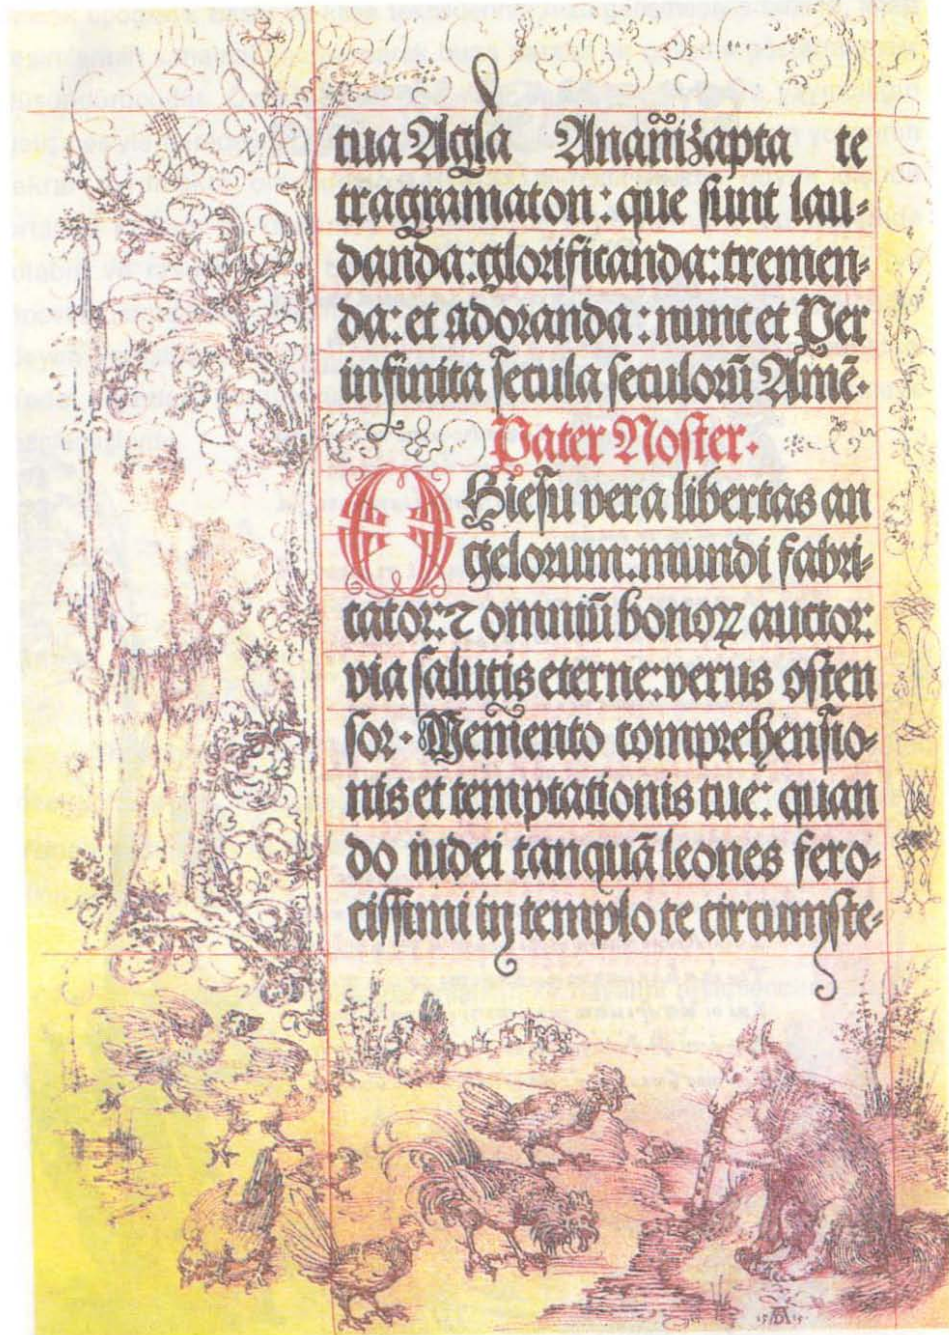 tua Agla Anan̄izapta te
tragramaton: que sunt lau-
danda: glorificanda: tremen-
da: et adoranda: nunc et Per
infinita secula seculorū Amē.
Pater Noster.
O Hiesu vera libertas an
gelorum: mundi fabri-
cator: ⁊ omniū bonoꝝ auctor:
via salutis eterne: verus osten
sor. Memento comprehensio-
nis et temptationis tue: quan
do iudei tanquā leones fero-
cissimi in templo te circumste-
15 AD 15